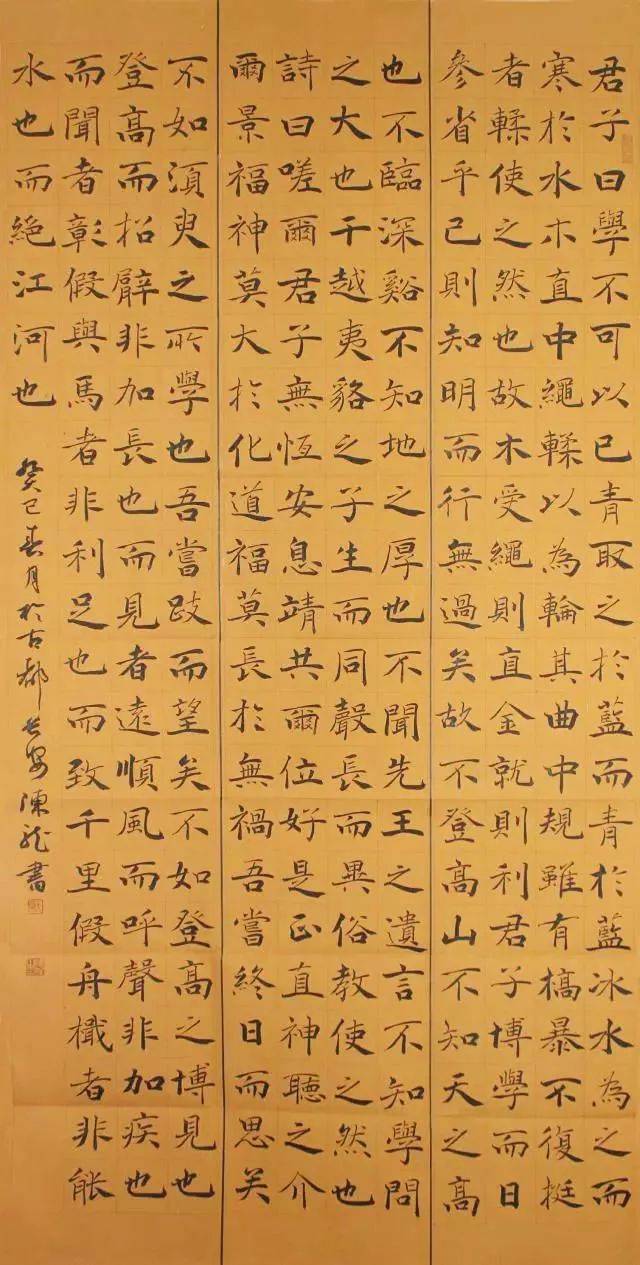 君子曰學不可以已青取之於藍而青於藍冰水為之而
寒於水木直中繩輮以為輪其曲中規雖有槁暴不復挺
者輮使之然也故木受繩則直金就則利君子博學而日
參省乎己則知明而行無過矣故不登高山不知天之高
也不臨深谿不知地之厚也不聞先王之遺言不知學問
之大也千越夷貉之子生而同聲長而異俗教使之然也
詩曰嗟爾君子無恆安息靖共爾位好是正直神聽之介
爾景福神莫大於化道福莫長於無禍吾嘗終日而思矣
不如須臾之所學也吾嘗跂而望矣不如登高之博見也
登高而招臂非加長也而見者遠順風而呼聲非加疾也
而聞者彰假與馬者非利足也而致千里假舟檝者非能
水也而絕江河也
癸巳春月於古都長安陳龍書